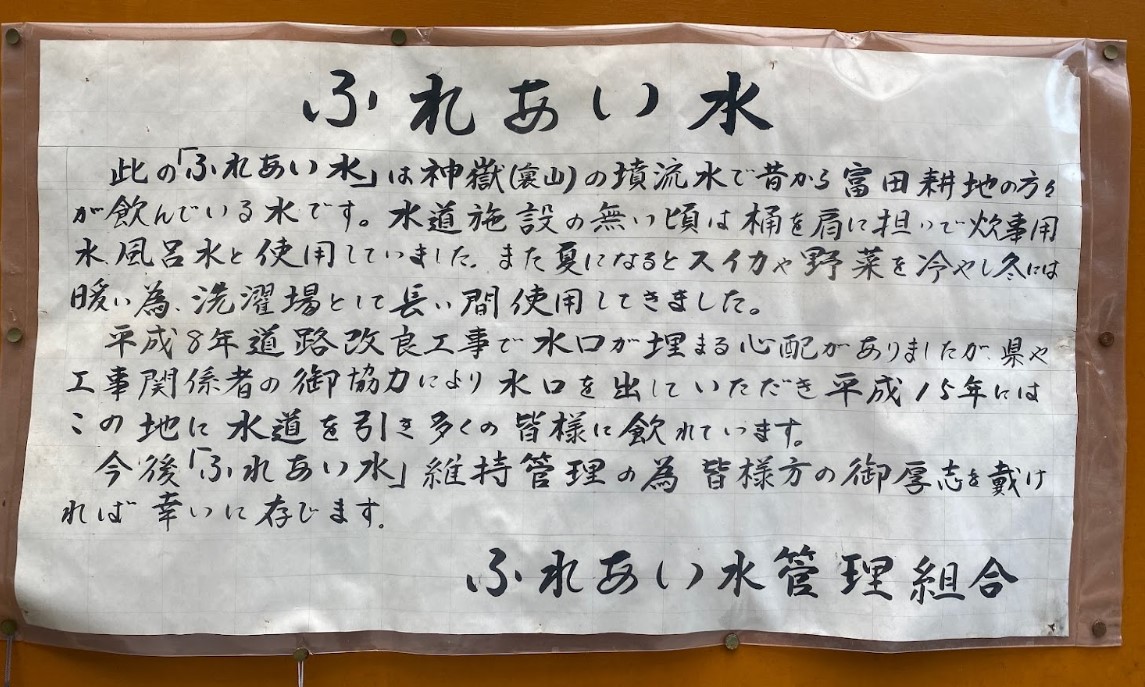 ふれあい水
此の「ふれあい水」は神嶽(裏山)の墳流水で昔から富田耕地の方々
が飲んでいる水です。水道施設の無い頃は桶を肩に担いで炊事用
水、風呂水と使用していました。また夏になるとスイカや野菜を冷やし冬には
暖い為、洗濯場として長い間使用してきました。
平成8年道路改良工事で水口が埋まる心配がありましたが、県や
工事関係者の御協力により水口を出していただき平成15年には
この地に水道を引き多くの皆様に飲れています。
今後「ふれあい水」維持管理の為皆様方の御厚志を戴け
れば幸いに存じます。
ふれあい水管理組合